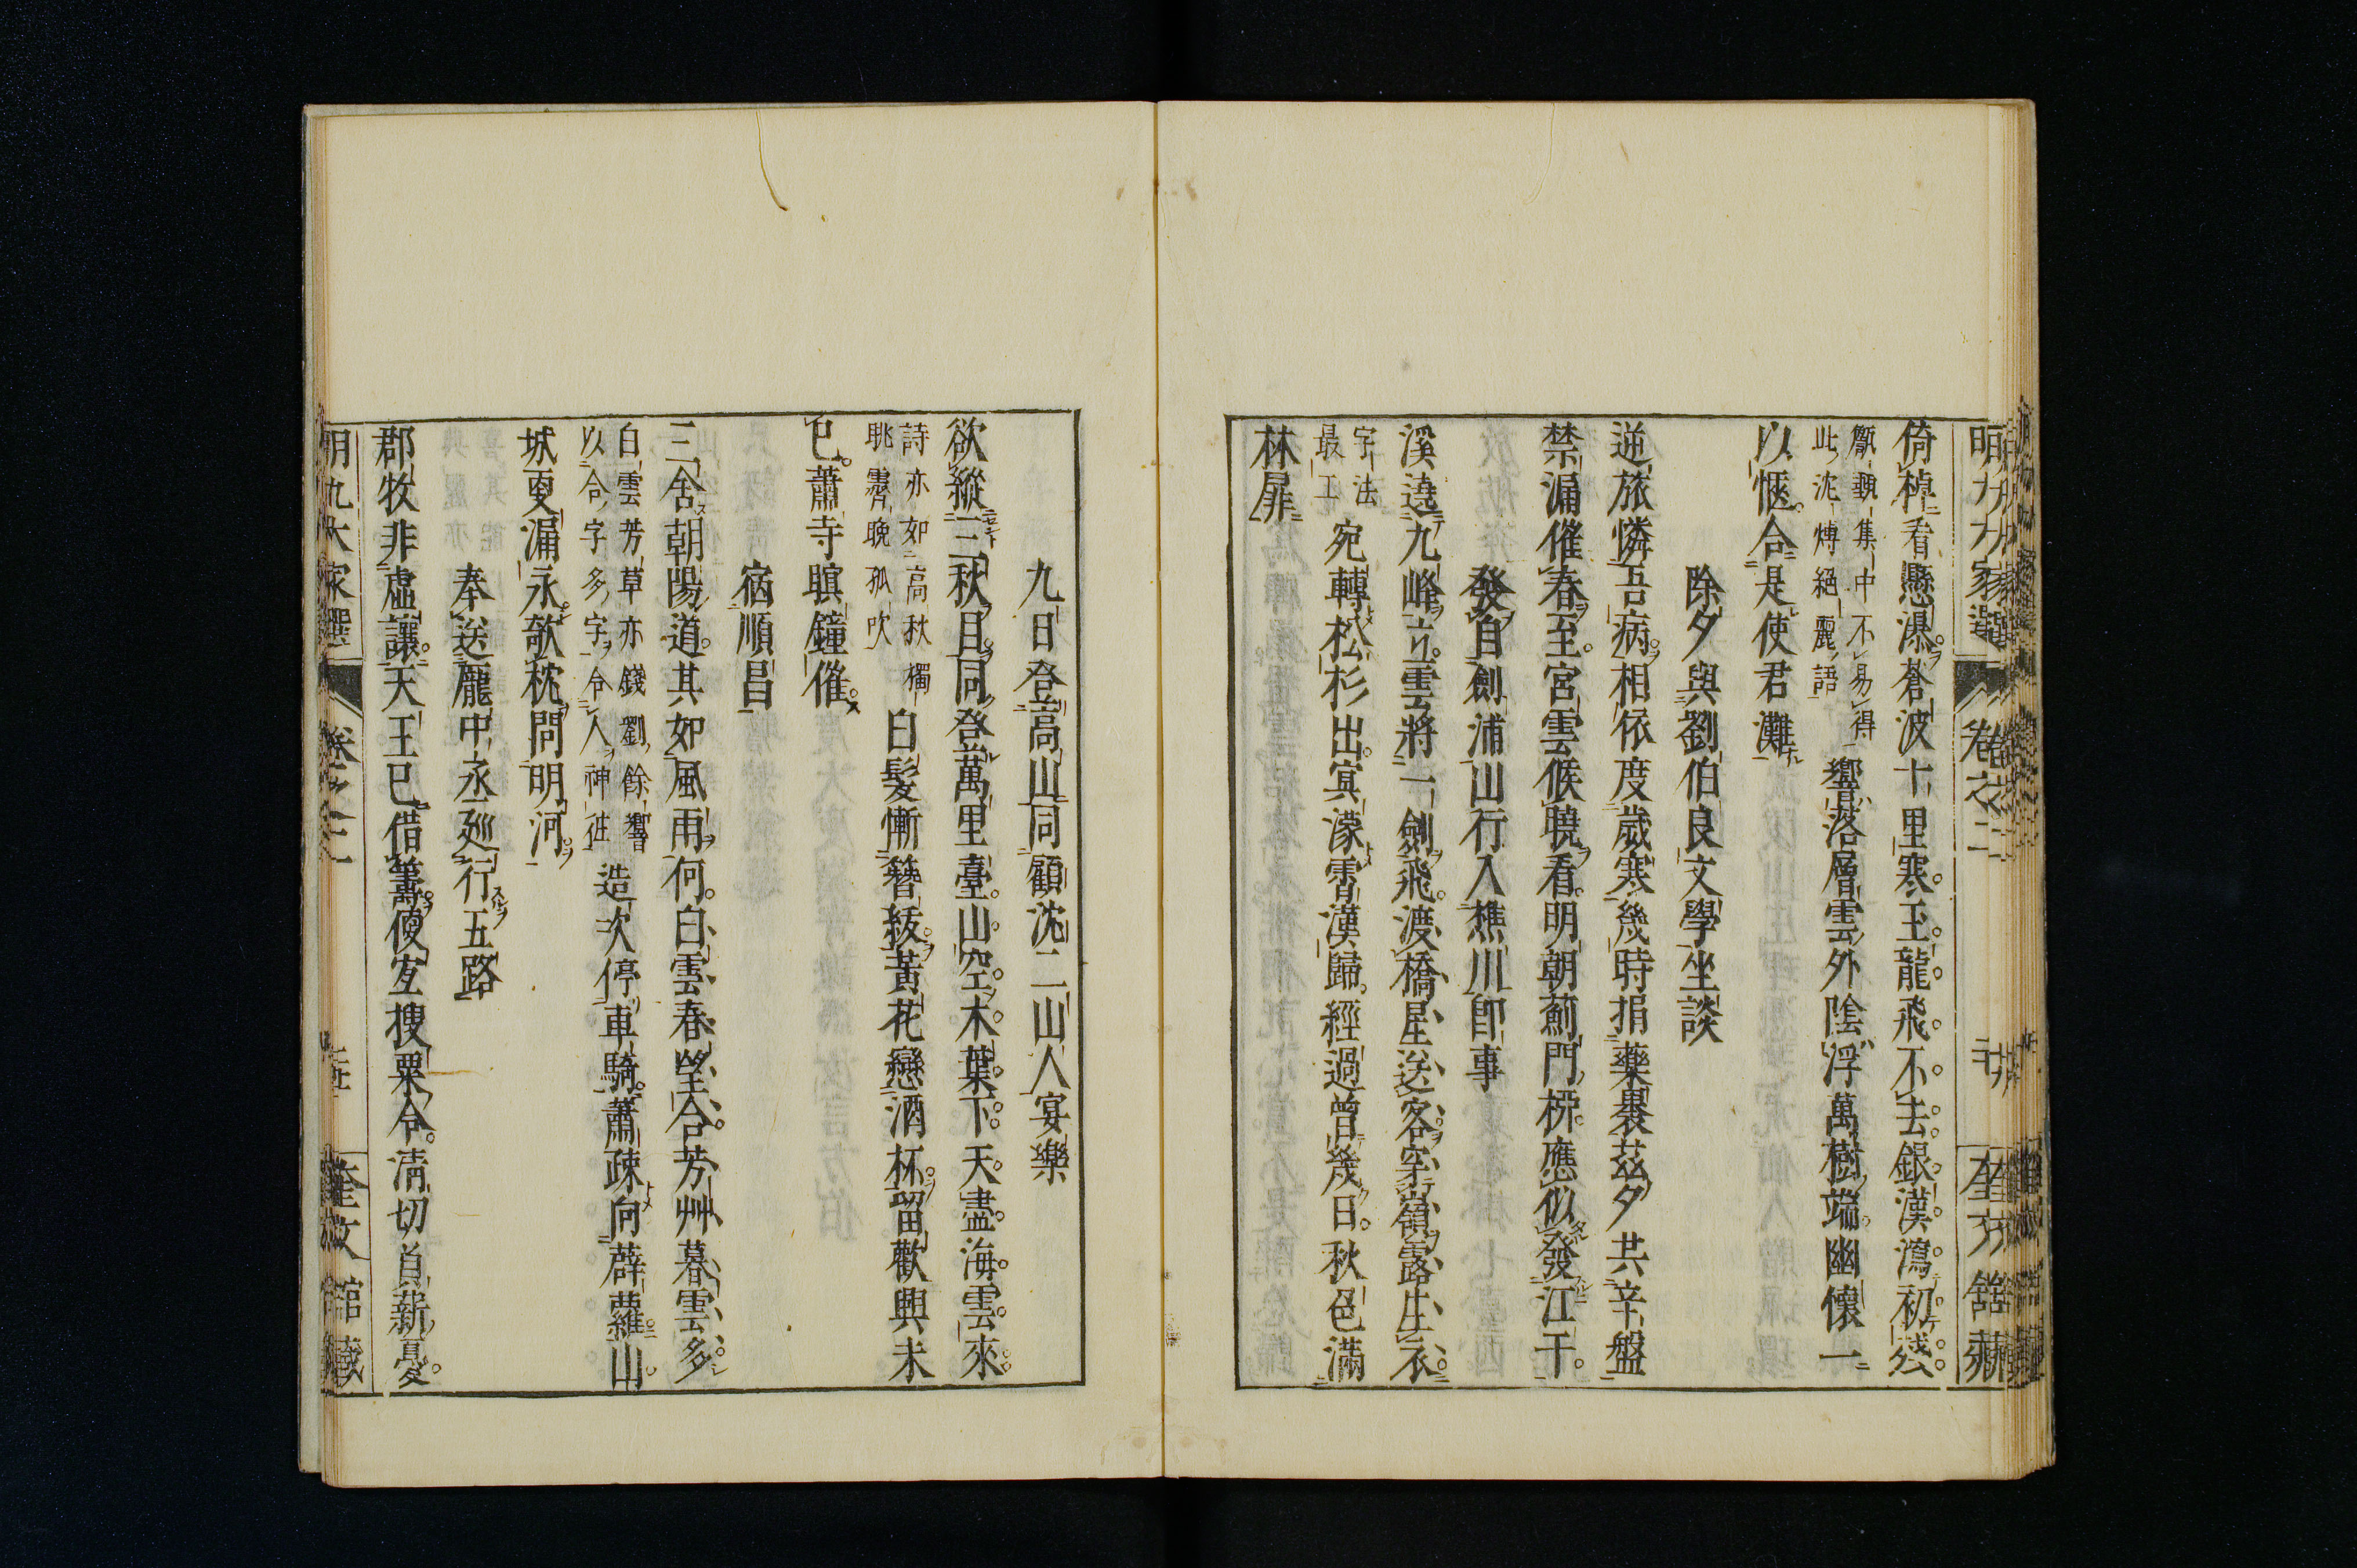 倚棹看懸瀑蒼波十里寒玉龍飛不去銀漢瀉初殘
集中不易得
此沈愽絕麗語
響落層雲外陰浮萬樹端幽懷一
以愜合是使君灘
除夕與劉伯良文學坐談
逆旅憐吾病相依度歲寒幾時捐藥裹茲夕共辛盤
禁漏催春至宮雲候曉看明朝薊門桺應似發江干
發自劍浦山行入樵川即事
溪遶九峰立雲將一劍飛渡橋星送客穿嶺露生衣
字法
最工
宛轉松杉出寘濛霄漢歸經過曾幾日秋色滿
林扉
明九大家選
卷之二
奎文館藏
九日登高山同顧沈二山人宴樂
欲縱三秋目同登萬里臺山空木葉下天盡海雲來
詩亦如高秋獨
眺霽晚孤吹
白髮慚簪紱黃花戀酒杯留歡興未
已蕭寺暝鐘催
宿順昌
三舍朝陽道其如風雨何白雲春望合芳艸暮雲多
白雲芳草亦錢劉餘響
以合字多字令人神
造次停車騎蕭疎向薜蘿山
城更漏永欹枕問明河
奉送龐中丞廵行五路
郡牧非虛讓天王已借籌傻宐搜粟令淸切首薪憂
明九大家選
卷之二
奎文館藏